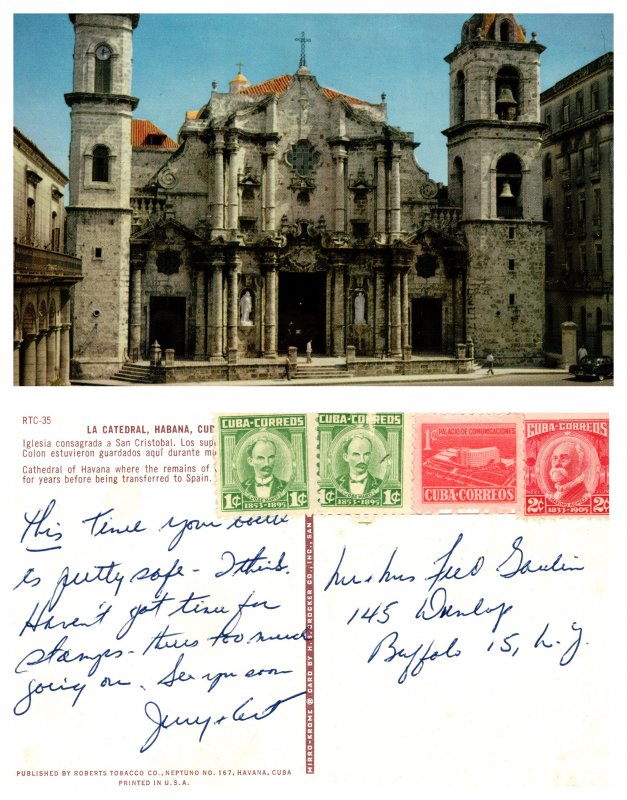 RTC-35
LA CATEDRAL, HABANA, CU
Iglesia consagrada a San Cristobal. Los sup
Colon estuvieron guardados aquí durante mu
Cathedral of Havana where the remains of
for years before being transferred to Spain.
CUBA·CORREOS
1¢ 1¢
1853-1895
CUBA·CORREOS
1¢ 1¢
1853-1895
1¢ PALACIO DE COMUNICACIONES
CUBA·CORREOS
CUBA·CORREOS
2¢ 2¢
1833-1905
This time your
is pretty safe - I think.
Haven't got time for
stamps - theres too much
going on. See you soon
Jerry + Art
MIRRO-KROME ® CARD BY H. S. CROCKER CO., INC., SAN
Mr + Mrs Fred
145 Dunlop
Buffalo 15, N.Y.
PUBLISHED BY ROBERTS TOBACCO CO., NEPTUNO NO. 167, HAVANA, CUBA
PRINTED IN U.S.A.